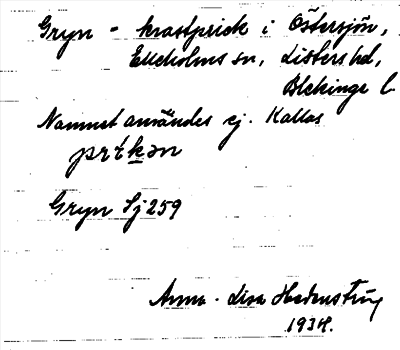 Gryn - krastprick i Östersjön,
Elleholms sn, Listers hd,
Blekinge l.
Namnet användes ej. Kallas
prikan
Gryn Sj 259
Anna-Lisa Hedenström
1934.